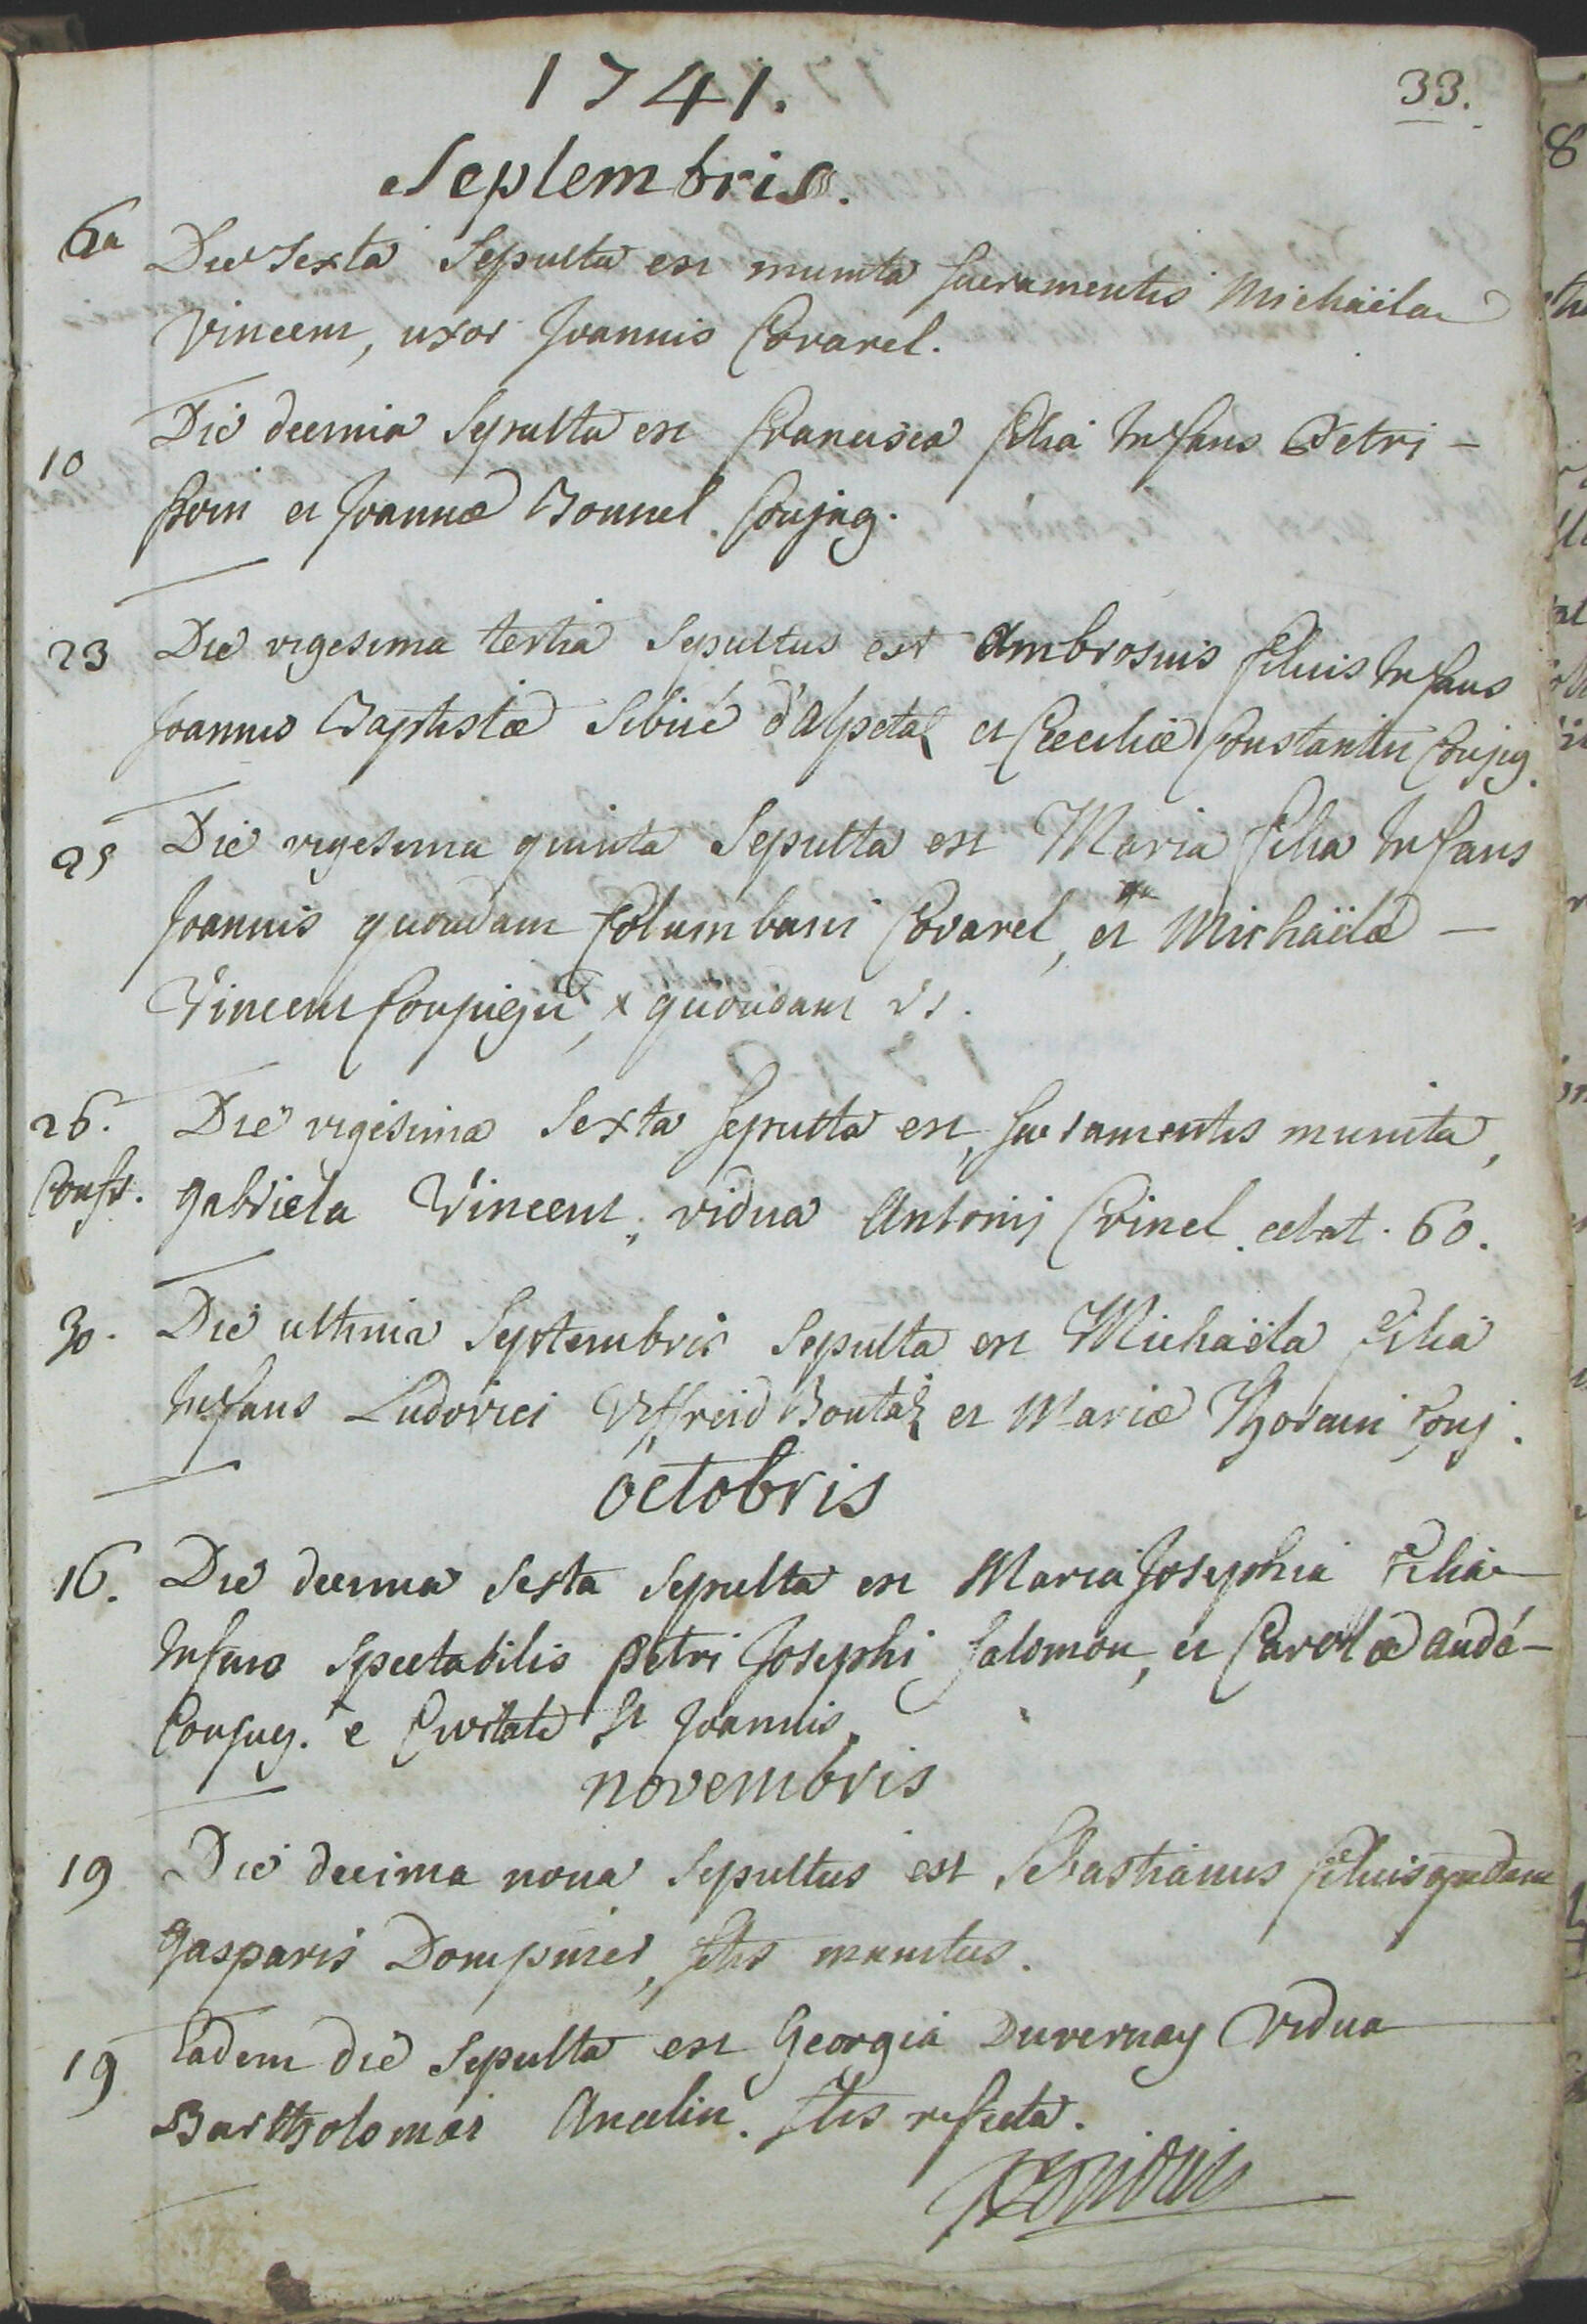 1741.
33.
Septembris.
6a Die Sexta Sepulta est munita Sacramentis Michaëla
Vincent, uxor Joannis Covarel.
10 Die decima Sepulta est Francisca filia Infans Petri -
et Joannæ Bonnel Conjug.
23 Die vigesima tertia Sepultus est Ambrosius filius Infans
Joannis Baptistæ Sibué d'alpetaz et Ceciliæ Constantin Conjug.
25 Die vigesima quinta Sepulta est Maria filia Infans
Joannis quondam Columbani Covarel, et Michaëlæ -
Vincent Conjugū, x quondam
26. Die vigesima Sexta Sepulta est, Sacramentis munita,
Confr. Gabriela Vincent, vidua Antonij Crinel. ætat. 60.
30. Die ultima Septembris Sepulta est Michaëla filia
Infans Ludovici Uffreid Boutaz et Mariæ Conj.
octobris
16. Die decima Sexta Sepulta est Maria Josepha filia
Infans Spectabilis Petri Josephi Salomon, et Carolæ audé -
Conjug. e Civitate St Joannis.
novembris
19 Die decima nona Sepultus est Sebastianus filius qudam
Gasparis Dompnier, Stis munitus.
19 Eadem die Sepulta est Georgia Duvernay Vidua
Bartholomæi Ancelin. Stis refecta.